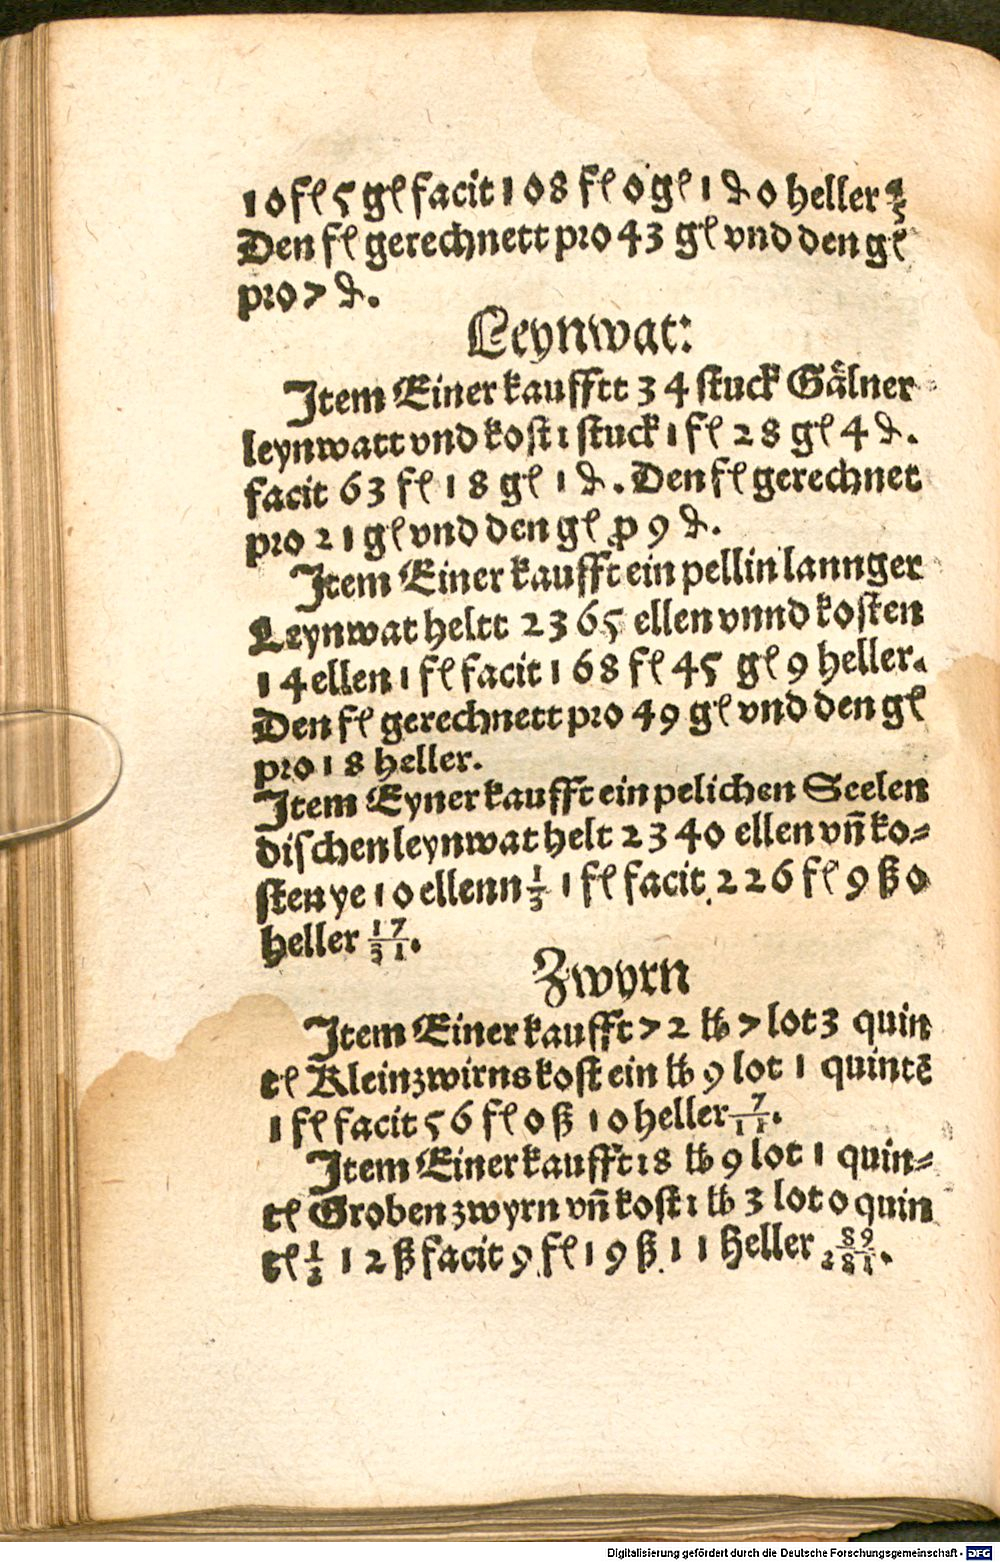 10 fl 5 gl facit 108 fl 0 gl 1 ₰ 0 heller ⅖
Den fl gerechnett pro 43 gl vnd den gl
pro 7 ₰.
Leynwat:
Item Einer kaufftt 34 stuck Gålner
leynwatt vnd kost 1 stuck 1 fl 28 gl 4 ₰.
facit 63 fl 18 gl 1 ₰. Den fl gerechnet
pro 21 gl vnd den gl ꝓ 9 ₰.
Item Einer kaufft ein pellin lannger
Leynwat heltt 2365 ellen vnnd kosten
14 ellen 1 fl facit 168 fl 45 gl 9 heller.
Den fl gerechnett pro 49 gl vnd den gl
pro 18 heller.
Item Eyner kaufft ein pelichen Seelen
dischen leynwat helt 2340 ellen vñ ko⸗
sten ye 10 ellenn 1/3 1 fl facit 226 fl 9 ß 0
heller 17/31.
Zwyrn
Item Einer kaufft 72 ℔ 7 lot 3 quin
tl Kleinzwirns kost ein ℔ 9 lot 1 quintē
1 fl facit 56 fl 0 ß 10 heller 7/11.
Item Einer kaufft 18 ℔ 9 lot 1 quin⸗
tl Groben zwyrn vñ kost 1 ℔ 3 lot 0 quin
tl 1/2 12 ß facit 9 fl 19 ß 11 Heller 89/281.
Digitalisierung gefördert durch die Deutsche Forschungsgemeinschaft - DFG